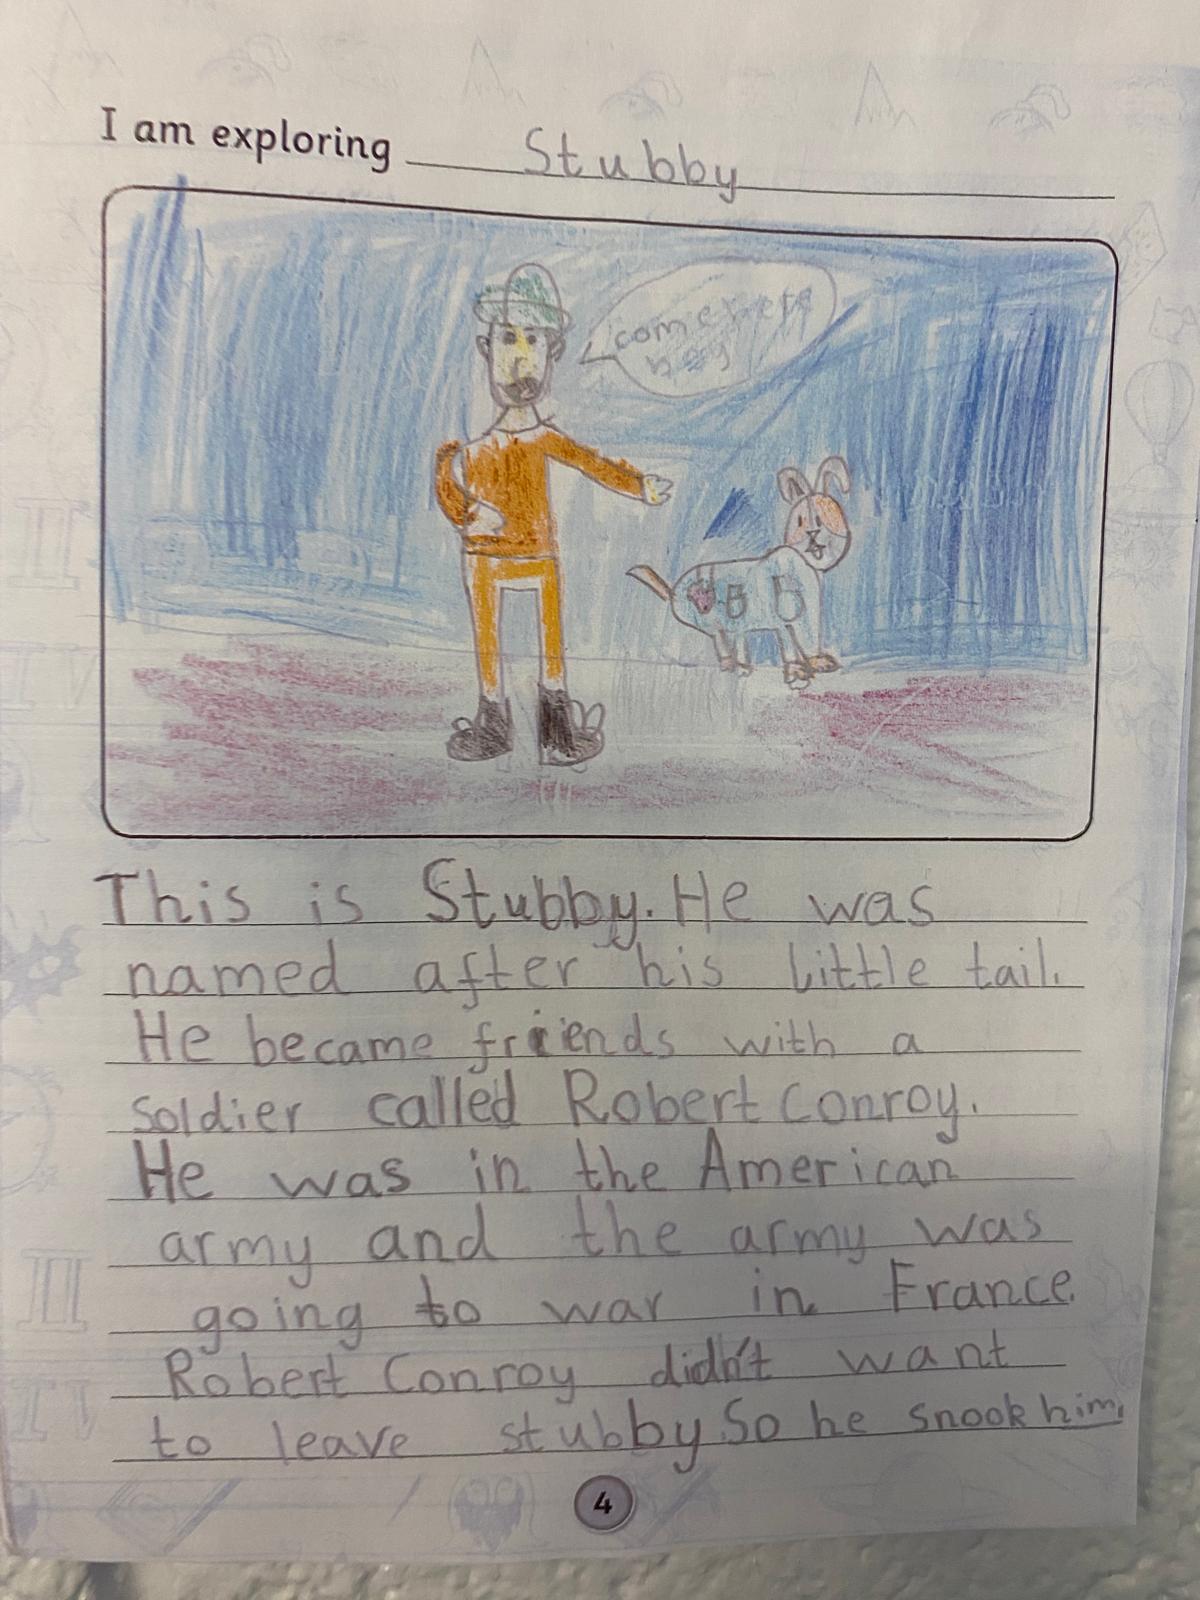 I am exploring Stubby
come here
boy
This is Stubby. He was
named after his little tail.
He became friends with a
soldier called Robert Conroy.
He was in the American
army and the army was
going to war in France.
Robert Conroy didn't want
to leave stubby So he snook him
4